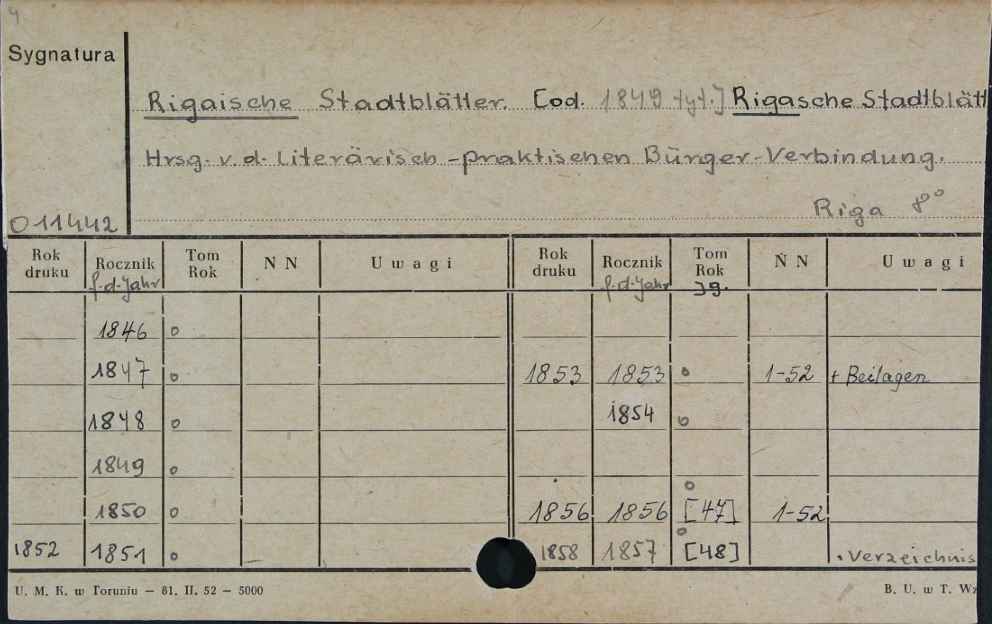 4
Sygnatura
Rigaische Stadtblätter. [od. 1849 tyt.] Rigasche Stadtblätt
Hrsg. v. d. Literärisch-praktischen Bürger-Verbindung.
Riga 8°
O 11442
Rok druku Rocznik f. d. Jahr Tom Rok NN Uwagi Rok druku Rocznik f. d. Jahr Tom Rok Jg. NN Uwagi
1846 o
1847 o 1853 1853 o 1-52 + Beilagen
1848 o 1854 o
1849 o
1850 o 1856 1856 o [47] 1-52
1852 1851 o 1858 1857 o [48] Verzeichnis
U. M. K. w Toruniu — 61. II. 52 — 5000 B. U. w T. Wz